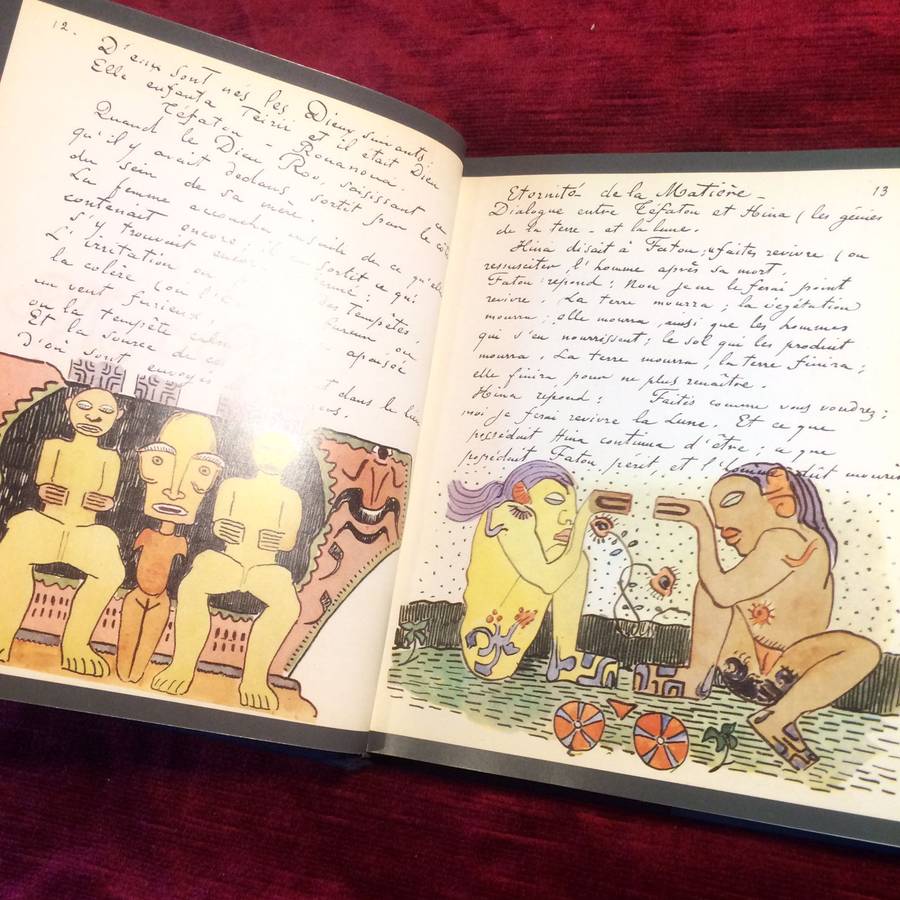 12.
D'eux sont nés les Dieux suivants:
Elle enfanta Téirii et il était Dieu
Téfatou - Rouanoua.
Quand le Dieu Roo, saisissant ce
qu'il y avait dedans, sortit par le côté
du sein de sa mère.
La femme accoucha ensuite de ce qu'elle
contenait encore; il sortit ce qui
s'y trouvait
L'irritation ou des Tempêtes,
la colère (ou
un vent furieux;
ou la tempête apaisée
Et la source de
D'où sont envoyés dans la
13
Eternité de la Matière -
Dialogue entre Téfatou et Hina (les génies
de la terre - et la lune.
Hina disait à Fatou; "faites revivre (ou
ressusciter, l'homme après sa mort.
Fatou répond: Non je ne le ferai point
revivre. La terre mourra; la végétation
mourra; elle mourra, ainsi que les hommes
qui s'en nourrissent; le sol qui les produit
mourra. La terre mourra, la terre finira;
elle finira pour ne plus renaître.
Hina répond: Faites comme vous voudrez:
moi je ferai revivre la Lune. Et ce que
possédait Hina continua d'être, ce que
possédait Fatou périt, et l'homme dût mourir